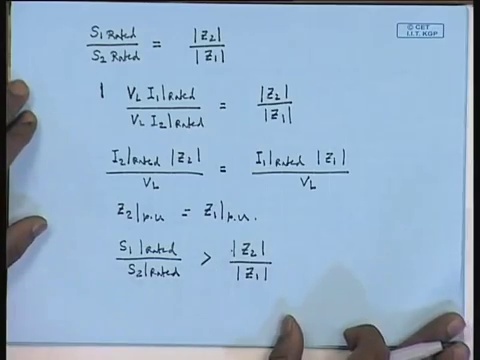 © CET
I.I.T. KGP
S₁ Rated / S₂ Rated = |Z₂| / |Z₁|
V_L I₁|Rated / V_L I₂|Rated = |Z₂| / |Z₁|
I₂|Rated |Z₂| / V_L = I₁|Rated |Z₁| / V_L
Z₂|p.u = Z₁|p.u.
S₁|Rated / S₂|Rated > |Z₂| / |Z₁|